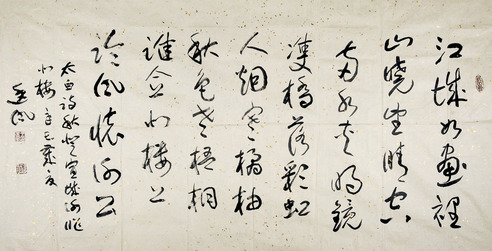 江城如畫裡
山曉望晴空
兩水夾明鏡
雙橋落彩虹
人烟寒橘柚
秋色老梧桐
誰念北樓上
臨風懷謝公
太白詩秋登宣城謝朓
北樓